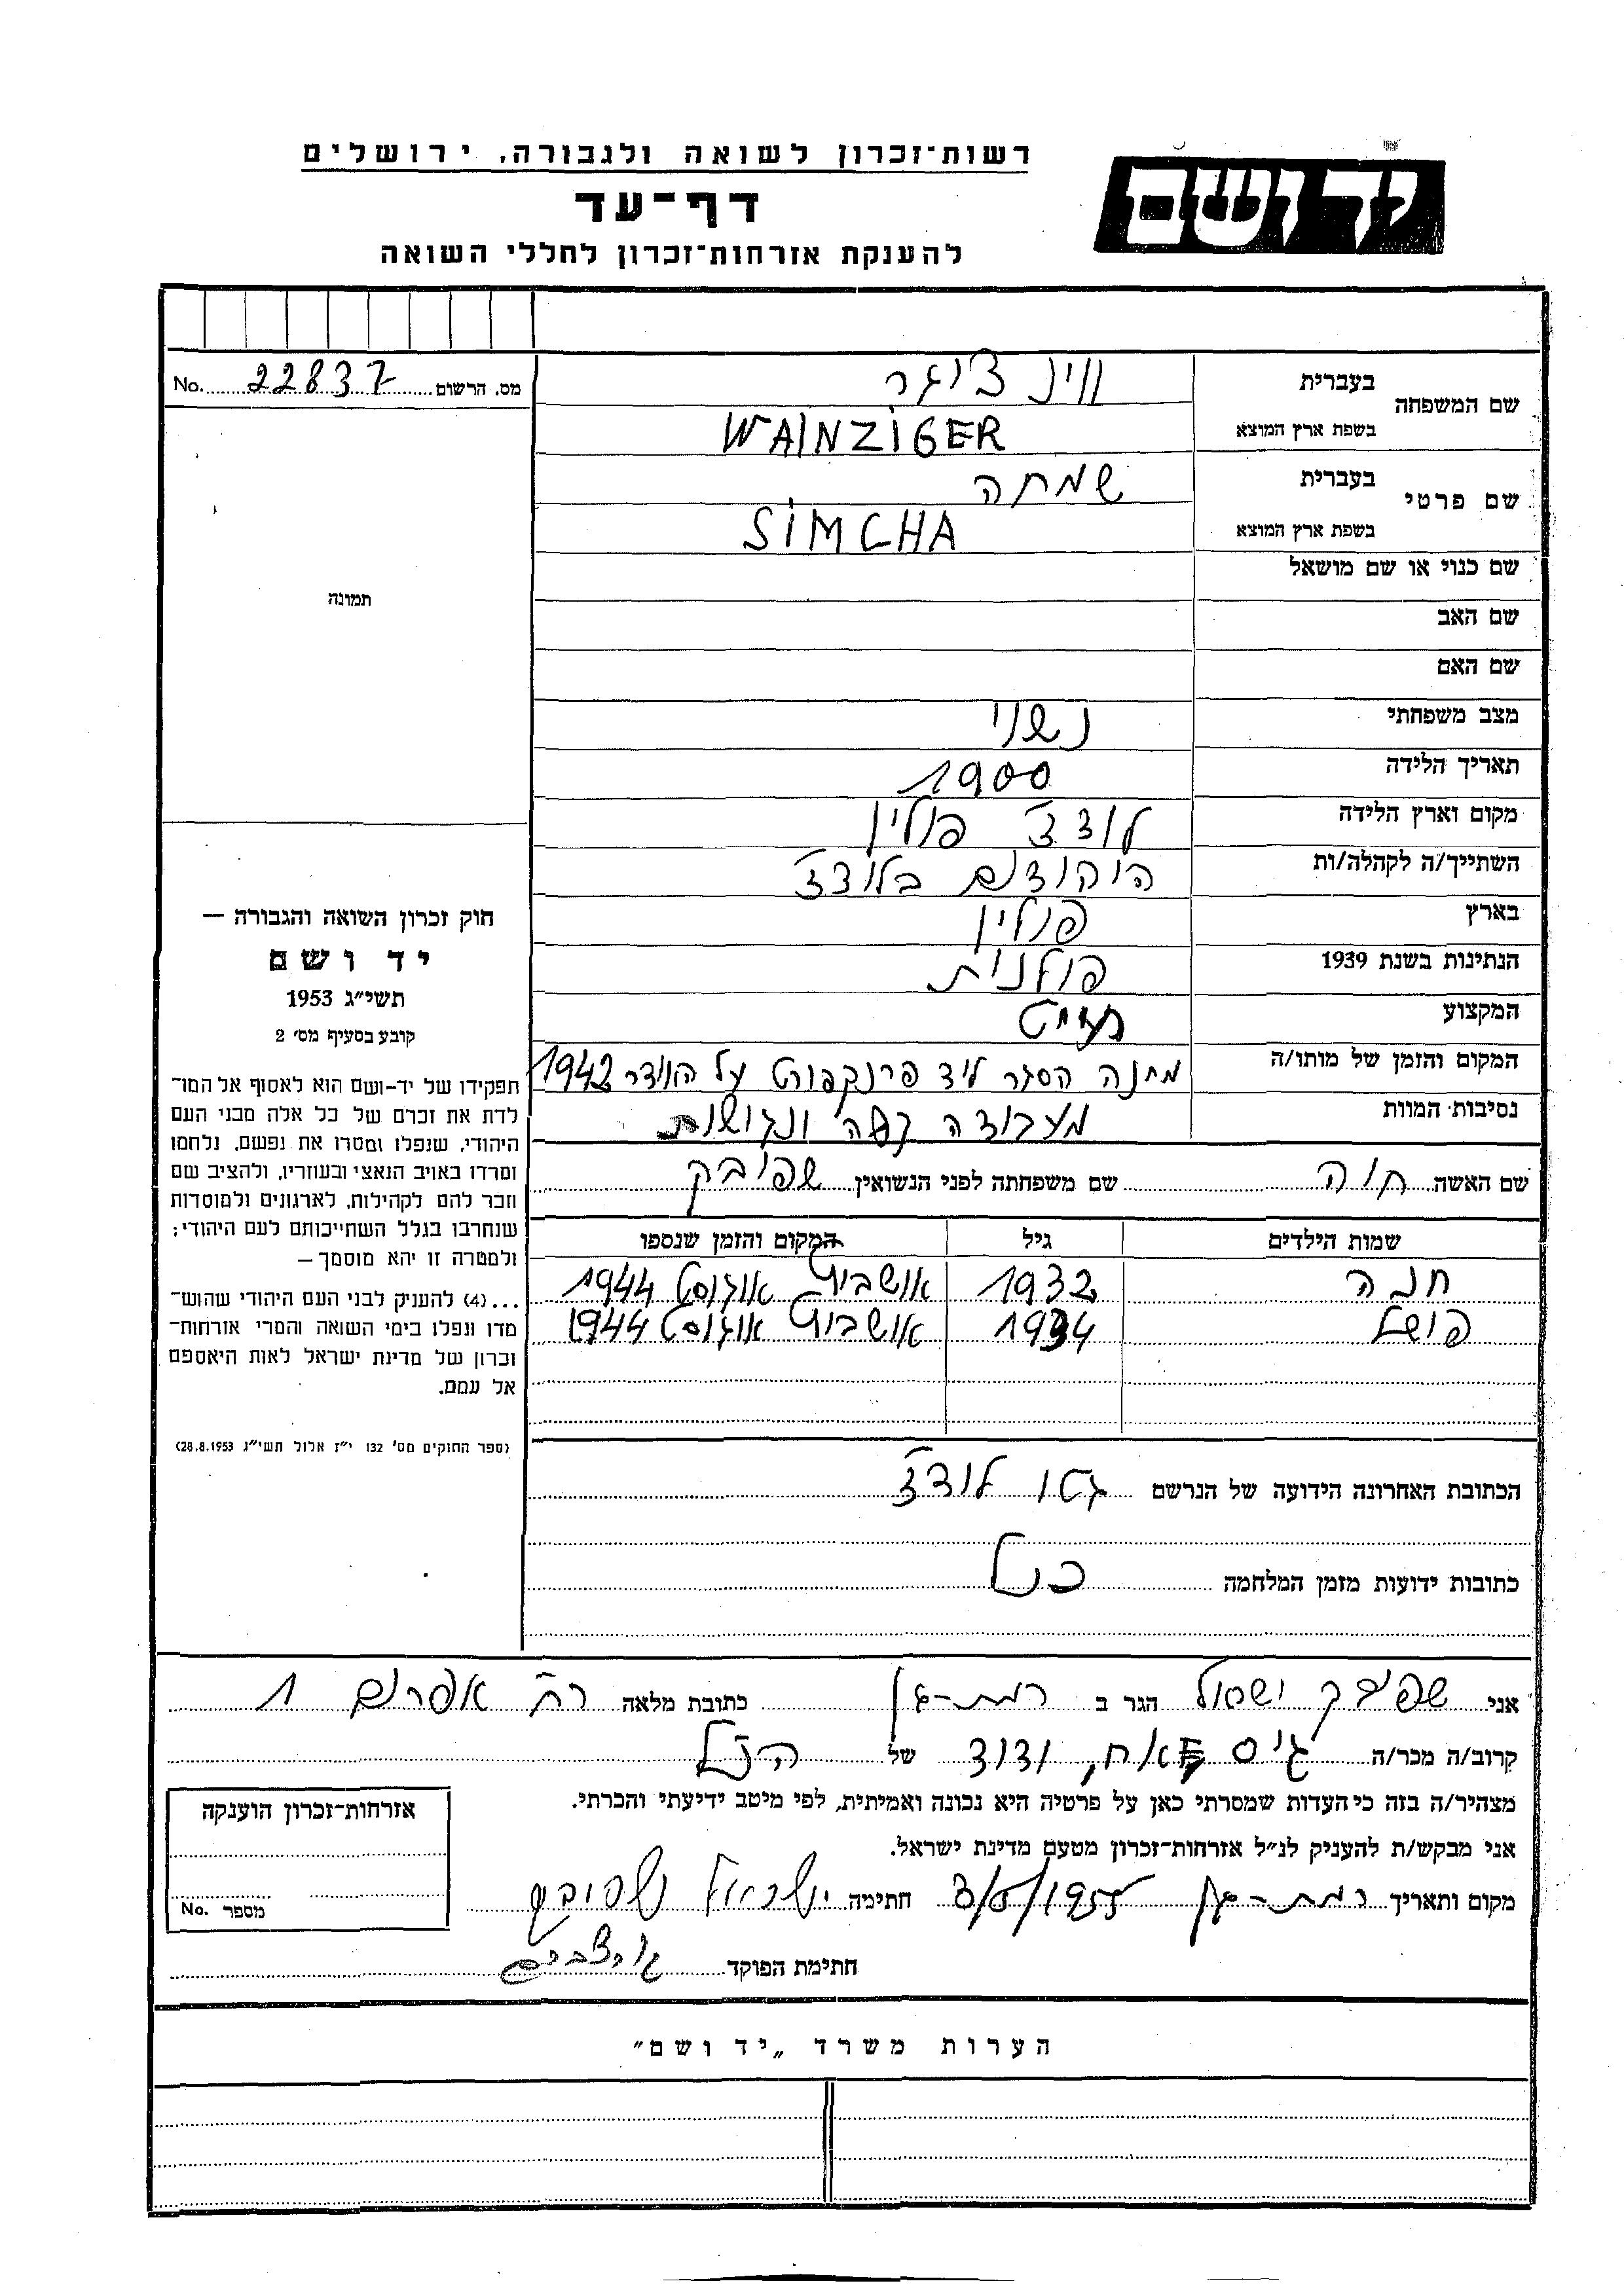 רשות־זכרון לשואה ולגבורה, ירושלים
דף־עד
להענקת אזרחות־זכרון לחללי השואה
יד ושם
מס. הרשום 22837 No.
שם המשפחה
בעברית ווינציגר
בשפת ארץ המוצא WAINZIGER
שם פרטי
בעברית שמחה
בשפת ארץ המוצא SIMCHA
שם כנוי או שם מושאל
שם האב
שם האם
מצב משפחתי נשוי
תאריך הלידה 1900
מקום וארץ הלידה לודז' פולין
השתייך/ה לקהלה/ות היהודים בלודז'
בארץ פולין
הנתינות בשנת 1939 פולנית
המקצוע חייט
המקום והזמן של מותו/ה מחנה הסגר ליד פרנקפורט על האודר 1942
נסיבות המוות מעבודה קשה ונגישות
שם האשה חוה שם משפחתה לפני הנשואין שפיבק
שמות הילדים גיל המקום והזמן שנספו
חנה 1932 אושביץ אוגוסט 1944
פושל 1934 אושביץ אוגוסט 1944
הכתובת האחרונה הידועה של הנרשם גטו לודז'
כתובות ידועות מזמן המלחמה כנ"ל
תמונה
חוק זכרון השואה והגבורה —
יד ושם
תשי״ג 1953
קובע בסעיף מס׳ 2
תפקידו של יד-ושם הוא לאסוף אל המו־
לדת את זכרם של כל אלה מבני העם
היהודי, שנפלו ומסרו את נפשם, נלחמו
ומרדו באויב הנאצי ובעוזריו, ולהציב שם
וזכר להם לקהילות, לארגונים ולמוסדות
שנחרבו בגלל השתייכותם לעם היהודי;
ולמטרה זו יהא מוסמך —
...(4) להעניק לבני העם היהודי שהוש־
מדו ונפלו בימי השואה והמרי אזרחות־
זכרון של מדינת ישראל לאות היאספם
אל עמם.
(ספר החוקים מס׳ 132 י״ז אלול תשי״ג 28.8.1953)
אני שפיבק ישראל הגר ב רמת-גן כתובת מלאה רח' אפרים 1
קרוב/ה מכר/ה גיס ודוד של הנ"ל
מצהיר/ה בזה כי העדות שמסרתי כאן על פרטיה היא נכונה ואמיתית, לפי מיטב ידיעתי והכרתי.
אני מבקש/ת להעניק לנ״ל אזרחות־זכרון מטעם מדינת ישראל.
מקום ותאריך רמת-גן 3/5/1955 חתימה ישראל שפיבק
חתימת הפוקד
אזרחות־זכרון הוענקה
מספר No.
הערות משרד „יד ושם״